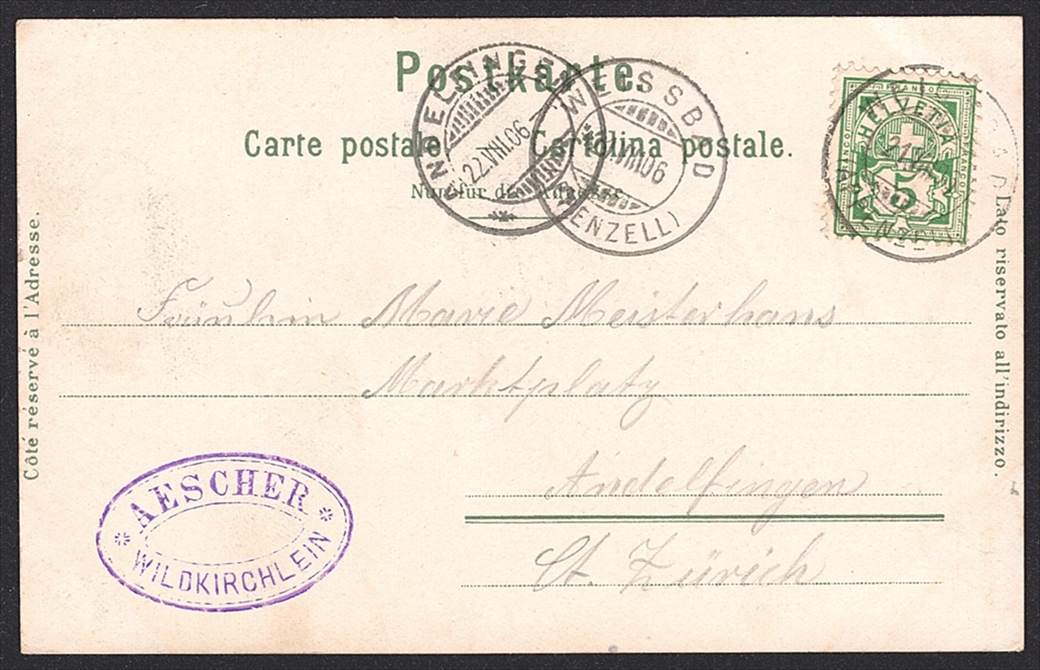 Postkarte.
Carte postale. Cartolina postale.
Nur für die Adresse.
ANDELFINGEN
22.VIII.06
WEISSBAD
VIII.06
(APPENZELL)
FRANCO
HELVETIA
5
WEISSBAD
21.
(APPENZELL)
Côté réservé à l'Adresse.
Lato riservato all'indirizzo.
Fräulein Marie Meisterhans
Marktplatz
Andelfingen
Ct. Zürich
AESCHER
WILDKIRCHLEIN